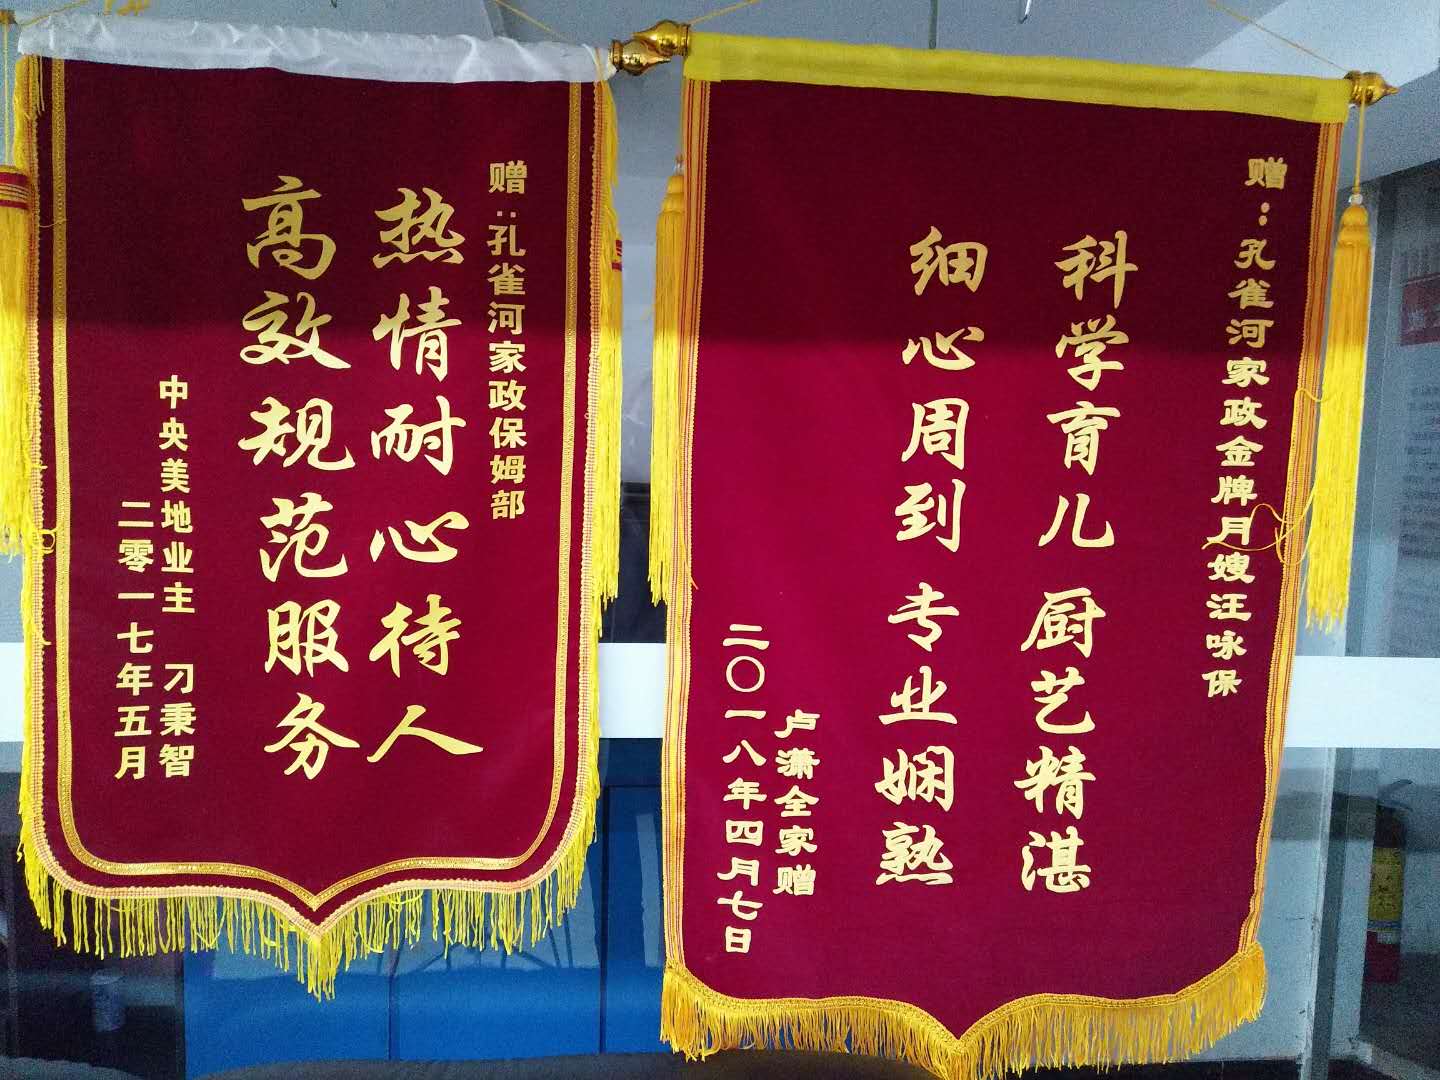 赠:孔雀河家政保姆部
热情耐心待人
高效规范服务
中央美地业主 刁秉智
二零一七年五月
赠:孔雀河家政金牌月嫂汪咏保
科学育儿 厨艺精湛
细心周到 专业娴熟
卢潇全家赠
二〇一八年四月七日